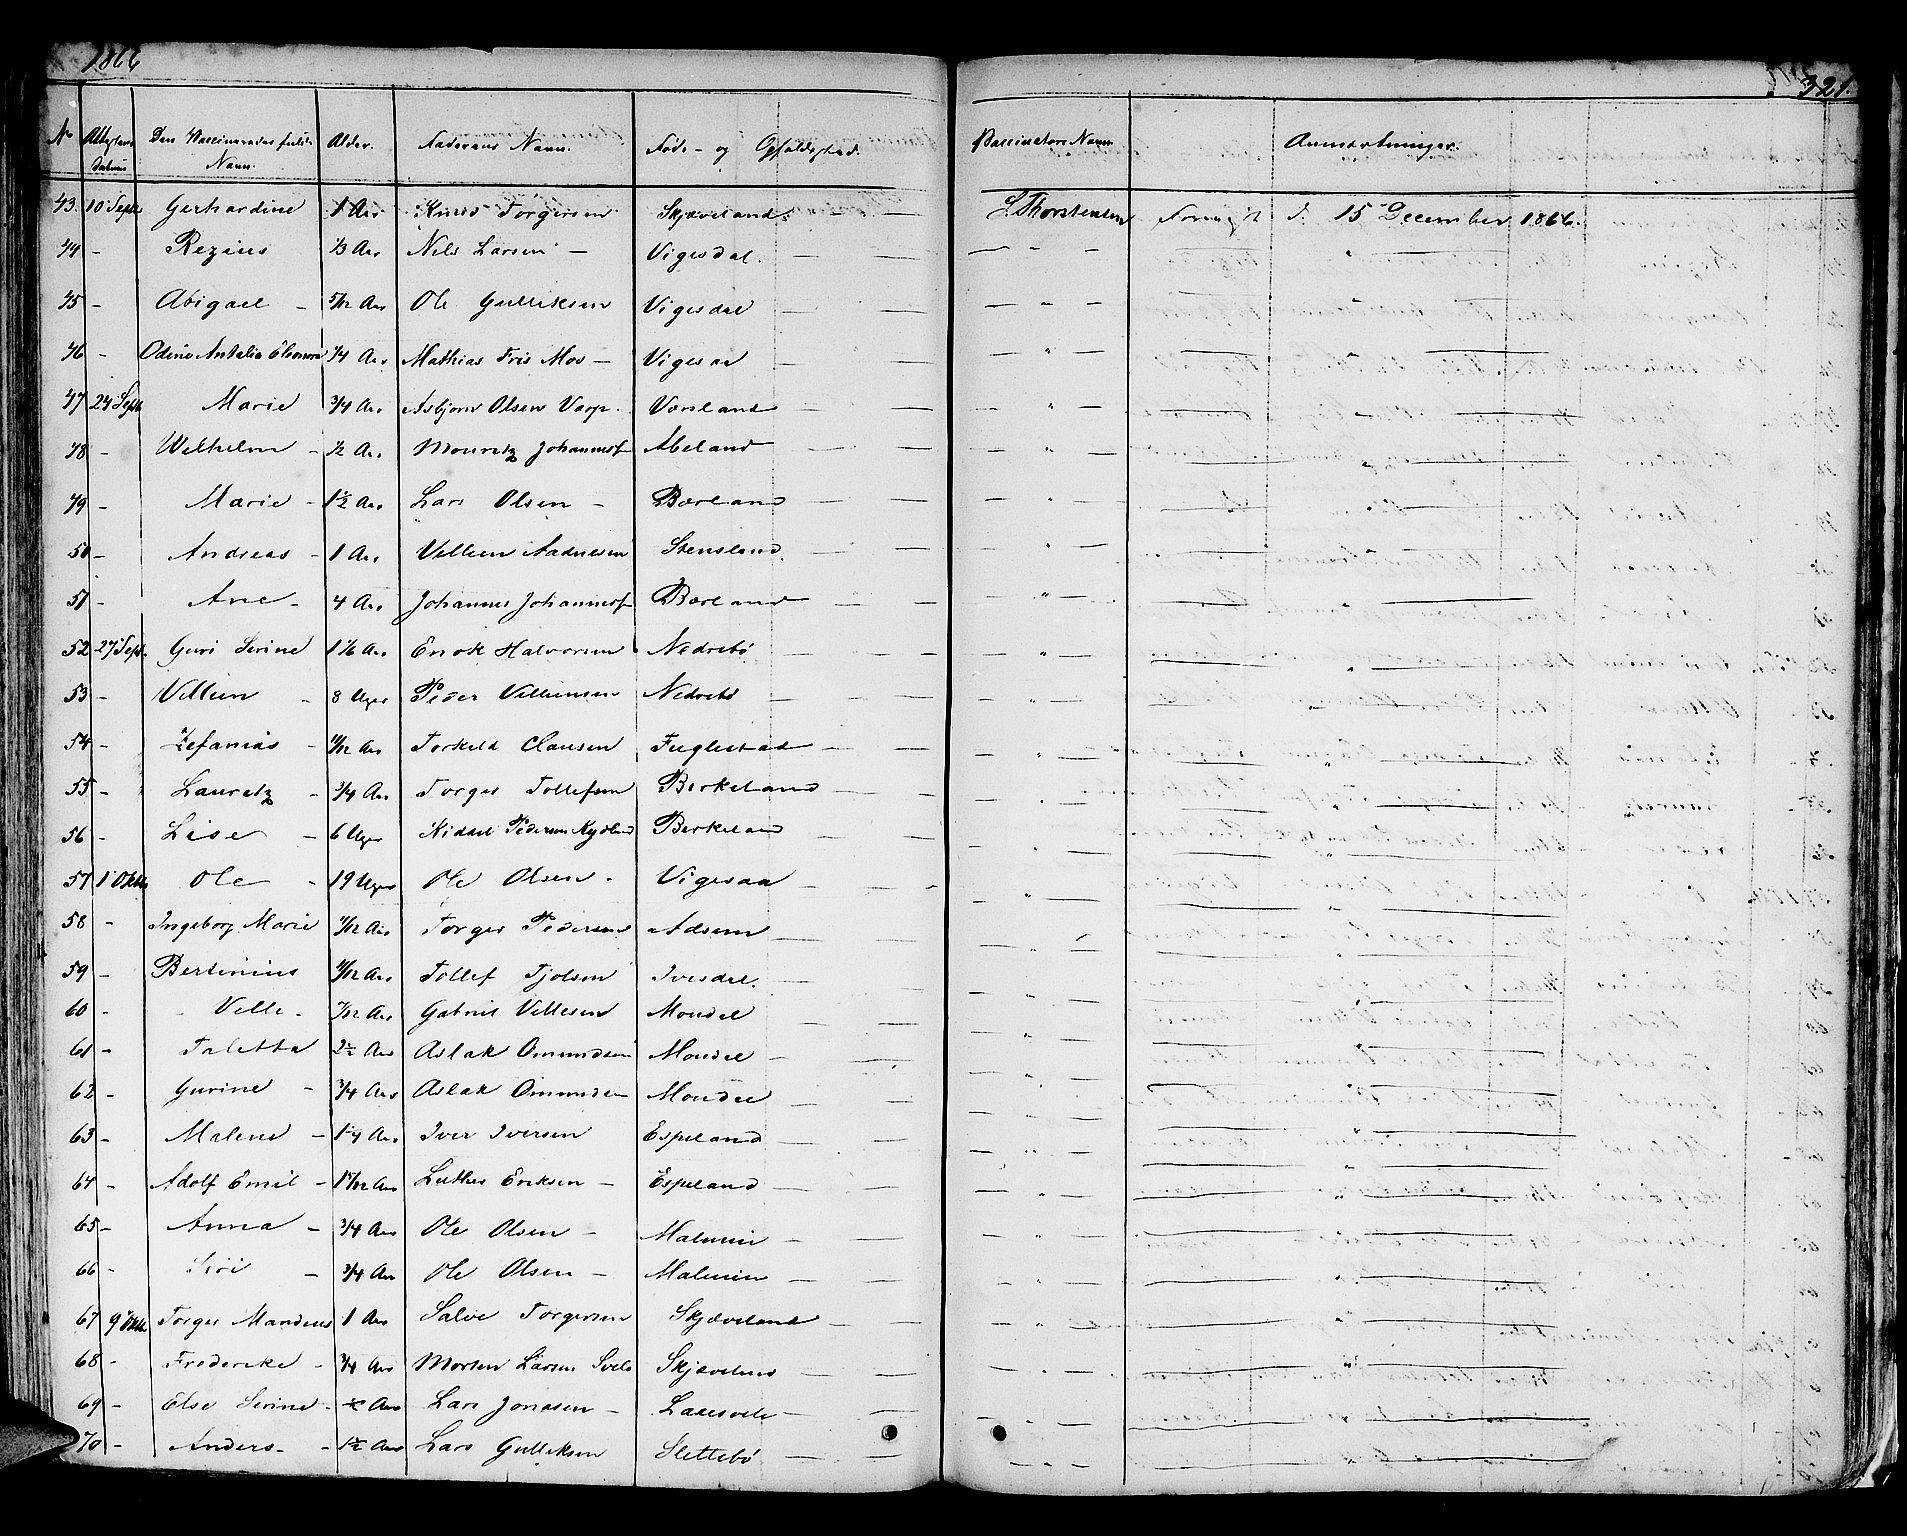 1866
321.
No Attestens Datum Den Vaccineredes fulde Navn. Alder. Faderens Navn. Føde- og Opholdssted. Vaccinators Navn Anmærkninger.
43. 10 Septb Gerhardine 1 Aar Knud Torgersen Skjæveland. S. Thorstensen d. 15 December 1866.
44 - Rezius 1/3 Aar Nils Larsen — Vigesdal. — — — " —
45 - Abigael - 5/12 Aar Ole Gulliksen Vigesdal — — — " —
46 - Odine Antalia Elenora 1/4 Aar Mathias Friis Moe — Vigesaa — — — " —
47 24 Septb Marie 3/4 Aar Asbjørn Olsen Varp. Varland — — " —
48 - Wilhelm - 1/2 Aar Mouretz Johannesf Abeland — — — " —
49 - Marie - 1 1/2 Aar Lars Olsen - Børland — — — " —
50 - Andreas - 1 Aar Villum Aadnesen Stensland. — — " —
51 - Ane - 4 Aar Johannes Johannesf Børland — — — " —
52 27 Sept. Guri Serine 1 1/6 Aar Enok Halvorsen Nedrebø — — — " —
53 - Villum - 8 Uger Peder Villumsen Nedrebø — — — " —
54 - Zefanias - 11/12 Aar Torkild Clausen Fuglestad — — — " —
55 - Lauretz - 3/4 Aar Torger Tollefsen Birkeland — — — " —
56 - Lise - 6 Uger Kiddel Pedersen Kydland Birkeland — — — " —
57 1 Oktb Ole - 19 Uger Ole Olsen - Vigesaa — — — " —
58 - Ingeborg Marie 11/12 Aar Torger Pedersen Adsem — — — " —
59 - Bertinius 11/12 Aar Tollef Tjølsen Ivesdal. — — — " —
60 - Velle - 7/12 Aar Gabriel Vellesen Moudel — — — " —
61 - Taletta 2 1/2 Aar Aslak Omundsen Moudel — — — " —
62 - Gurine - 3/4 Aar Aslak Omundsen Moudel — — — " —
63 - Malene - 1 1/4 Aar Iver Iversen Espeland — — — " —
64 - Adolf Emil - 1 5/12 Aar Luther Eriksen — Espeland — — — " —
65 - Anna - 3/4 Aar Ole Olsen — Malmin — — — " —
66 - Siri - 3/4 Aar Ole Olsen — Malmin — — — " —
67 9 Oktb Torger Mandius 1 Aar Salve Torgersen Skjæveland — — — " —
68 - Frederike - 3/4 Aar Morten Larsen Svele Skjæveland — — — " —
69 - Else Serine - 1/2 Aar Lars Jonasen — Laxesvele — — — " —
70 - Anders - - 1 1/2 Aar Lars Gulliksen Slettebø — — — " —